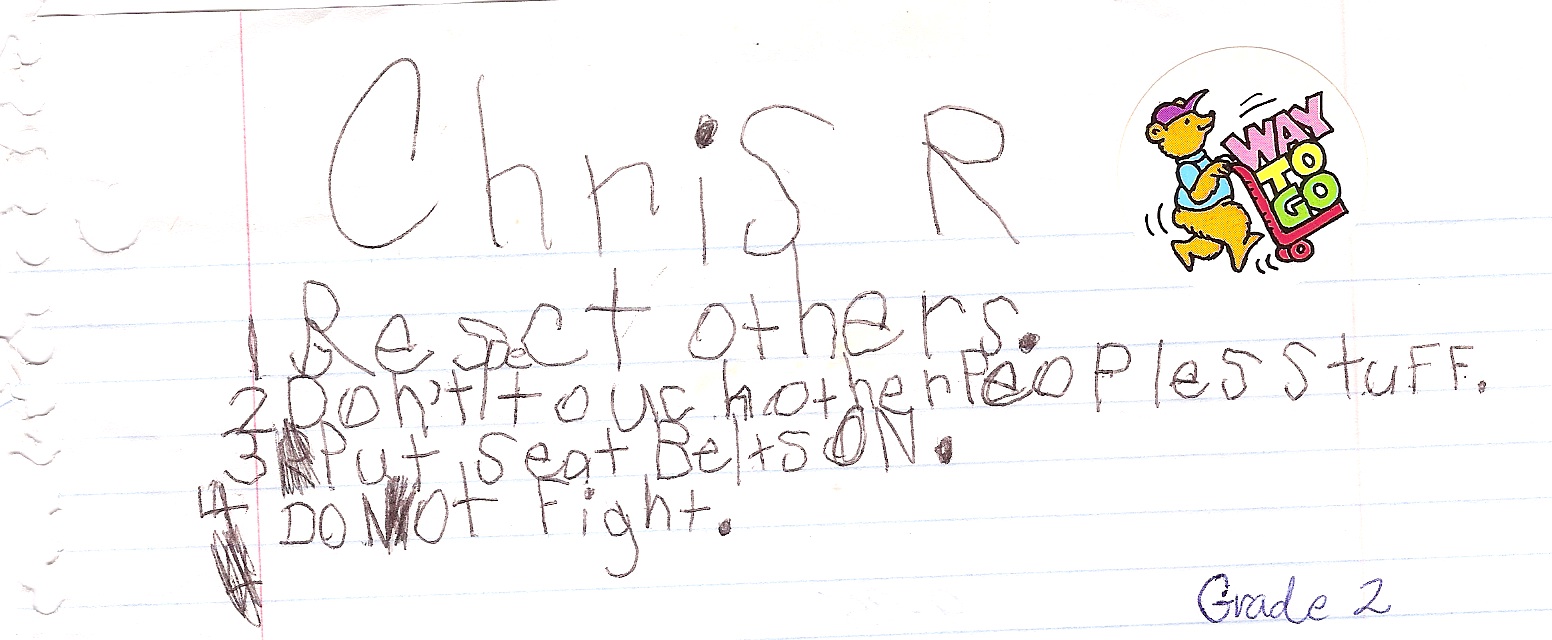 ChriS R
WAY
TO
GO
1 Respect others.
2 Don't touch other PeoPles StuFF.
3 Put Seat BeltS ON.
4 DO NOt Fight.
Grade 2